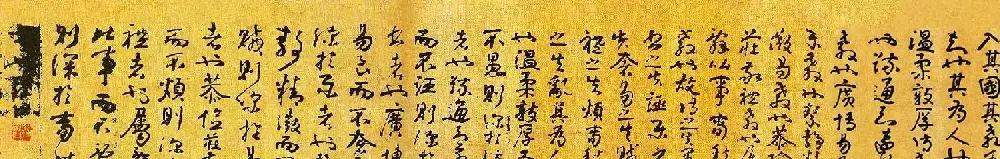 入其國其教
知也其為人也
溫柔敦厚詩
也疏通知遠
教也廣博易
樂教也絜靜
微易教也恭儉
莊敬禮教也
辭比事春秋
教也故詩之失
書之失誣樂之
失奢易之失賊
禮之失煩春秋
之失亂其為人
也溫柔敦厚而
不愚則深於
者也疏通知遠
而不誣則深於
者也廣博
易良而不奢
深於樂者也
靜精微而
賊則深於
者也恭儉莊
而不煩則深
禮者也屬辭
比事而不亂
則深於春